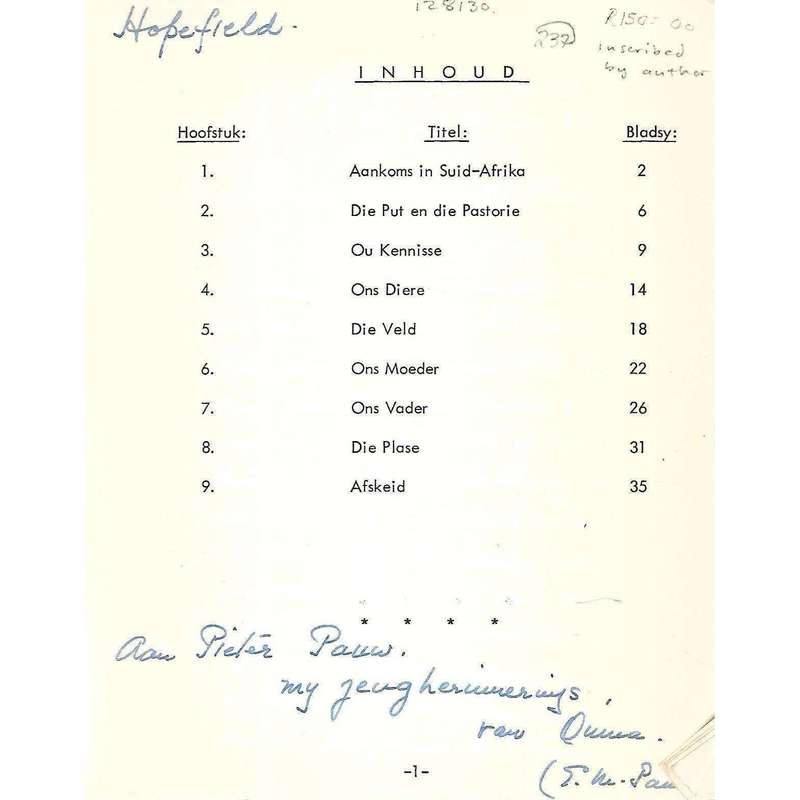 Hopefield.
128130.
237
R150-00
inscribed
by author
INHOUD
Hoofstuk: Titel: Bladsy:
1. Aankoms in Suid-Afrika 2
2. Die Put en die Pastorie 6
3. Ou Kennisse 9
4. Ons Diere 14
5. Die Veld 18
6. Ons Moeder 22
7. Ons Vader 26
8. Die Plase 31
9. Afskeid 35
* * * *
Aan Pieter Pauw.
my jeugherinnerings,
van Ouma.
-1-
(E.M. Pau